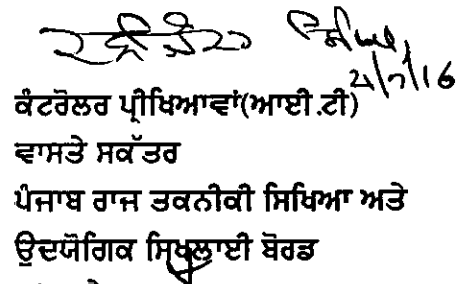 21/7/16
ਕੰਟਰੋਲਰ ਪ੍ਰੀਖਿਆਵਾਂ(ਆਈ.ਟੀ)
ਵਾਸਤੇ ਸਕੱਤਰ
ਪੰਜਾਬ ਰਾਜ ਤਕਨੀਕੀ ਸਿਖਿਆ ਅਤੇ
ਉਦਯੋਗਿਕ ਸਿਖਲਾਈ ਬੋਰਡ